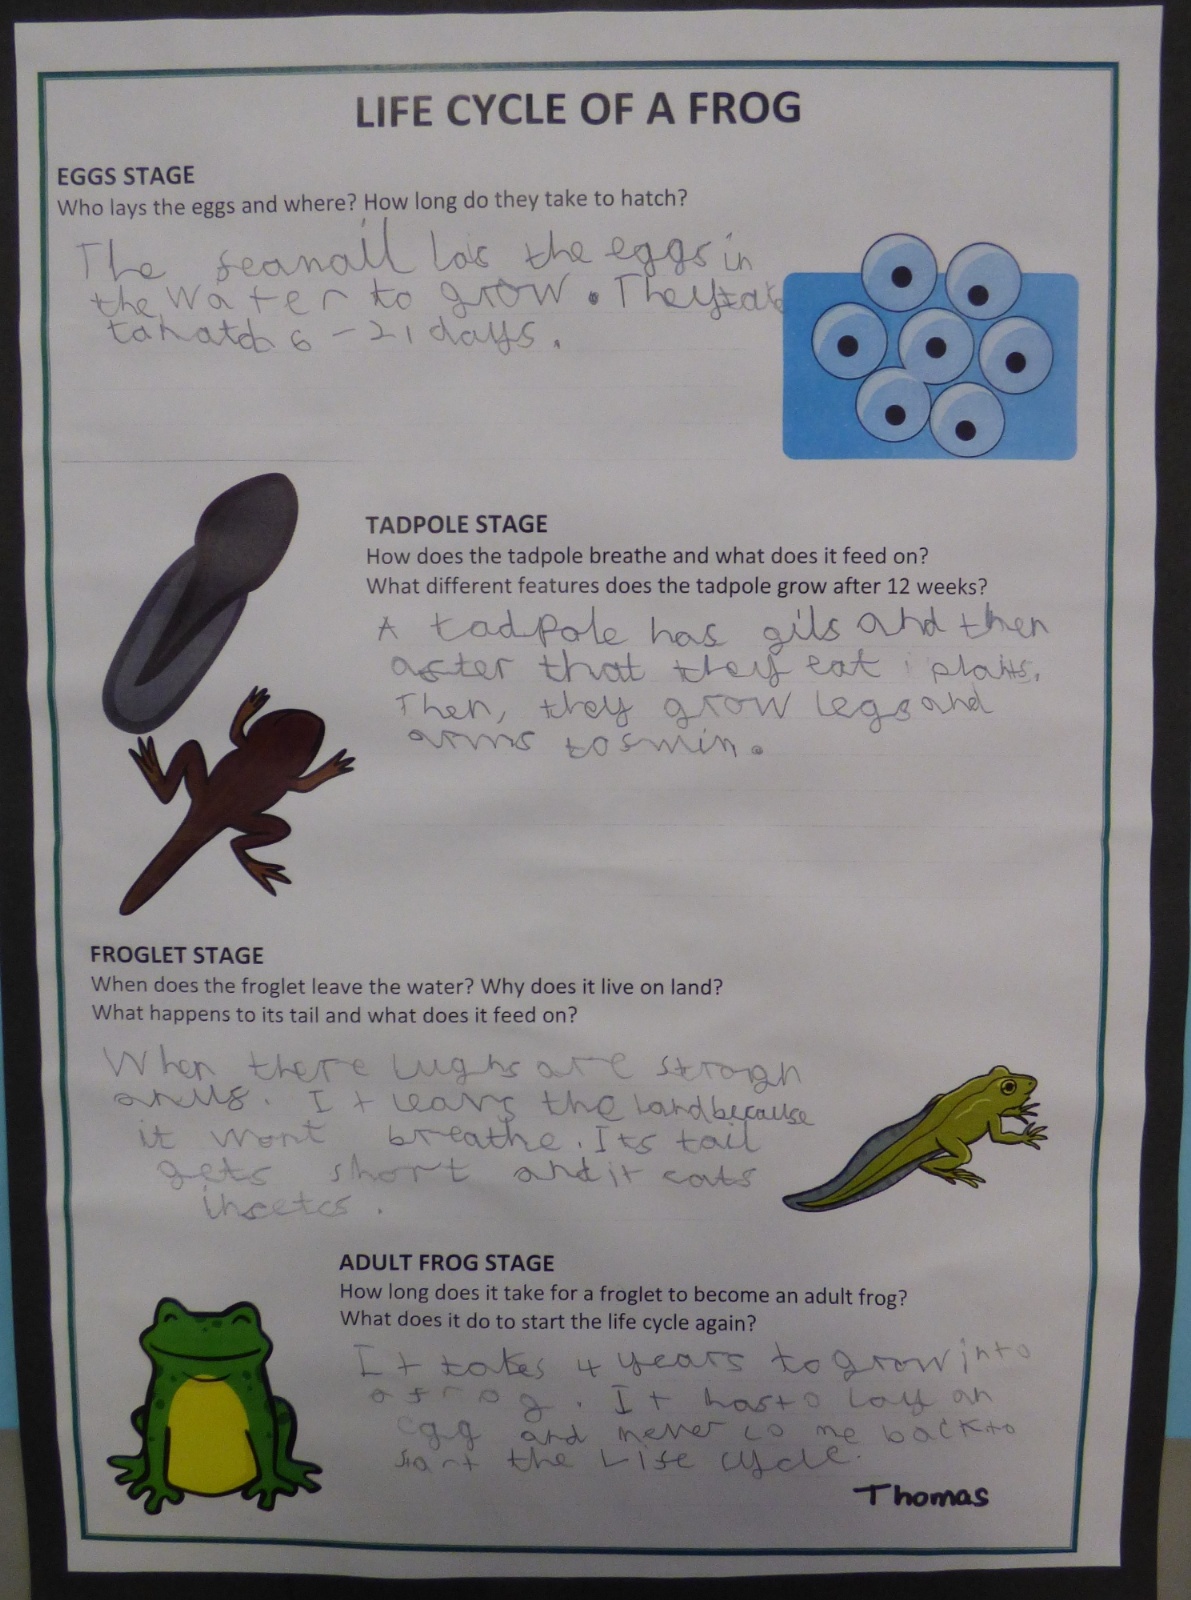 LIFE CYCLE OF A FROG
EGGS STAGE
Who lays the eggs and where? How long do they take to hatch?
The feamall lais the eggs in
the water to grow. They take
to hatch 6 - 21 days.
TADPOLE STAGE
How does the tadpole breathe and what does it feed on?
What different features does the tadpole grow after 12 weeks?
A tadpole has gils and then
after that they eat plants.
Then, they grow legs and
arms to smin.
FROGLET STAGE
When does the froglet leave the water? Why does it live on land?
What happens to its tail and what does it feed on?
When there lughs are
It leavs the land because
it wont breathe. Its tail
gets short and it eats
insetcs.
ADULT FROG STAGE
How long does it take for a froglet to become an adult frog?
What does it do to start the life cycle again?
It takes 4 years to grow into
a frog. It has to lay an
egg and never come back to
start the Life cycle.
Thomas